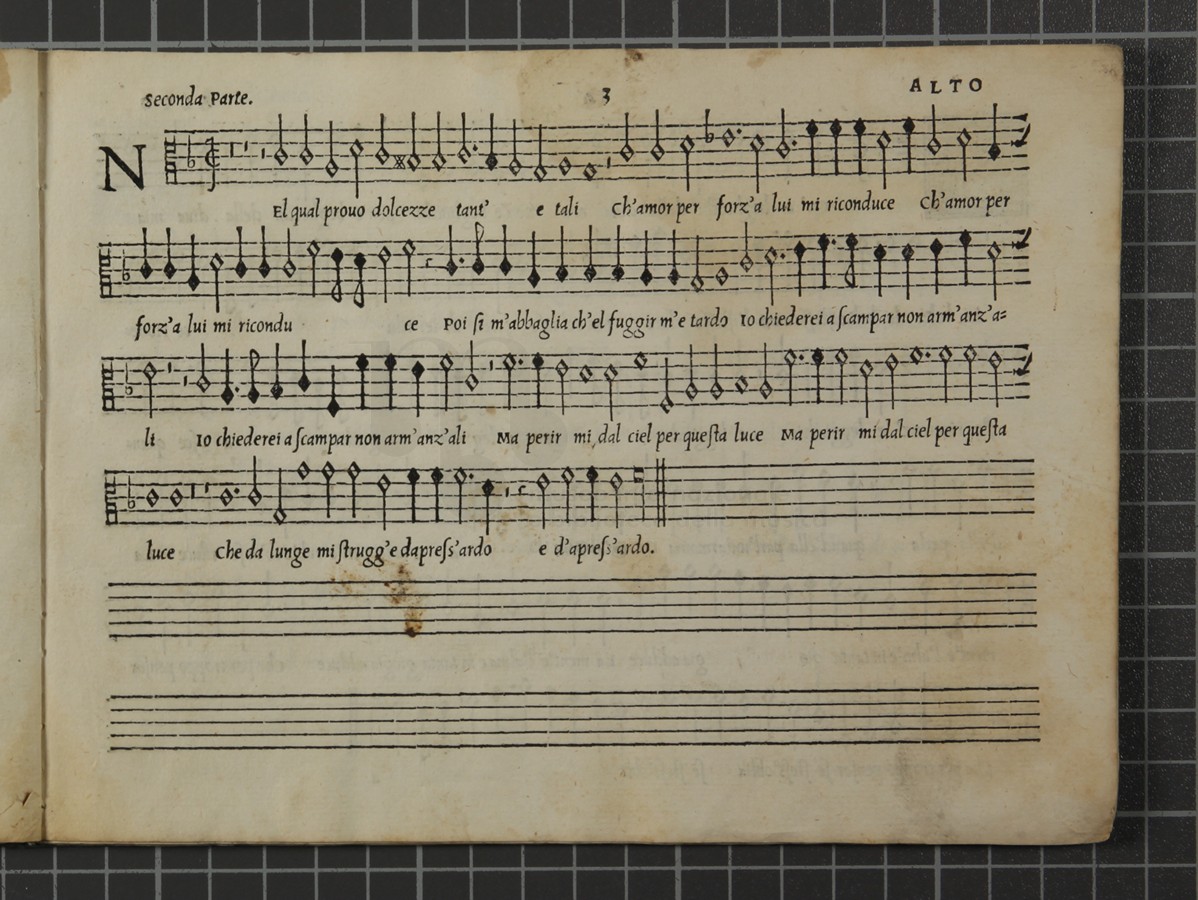 Seconda Parte. 3 ALTO
NEl qual prouo dolcezze tant' e tali Ch'amor per forz'a lui mi riconduce Ch'amor per
forz'a lui mi ricondu ce Poi ſi m'abbaglia ch'el fuggir m'e tardo Io chiederei a ſcampar non arm'anz'a=
li Io chiederei a ſcampar non arm'anz'ali Ma perir mi dal ciel per queſta luce Ma perir mi dal ciel per queſta
luce Che da lunge mi ſtrugg'e dapreſs'ardo e d'apreſs'ardo.